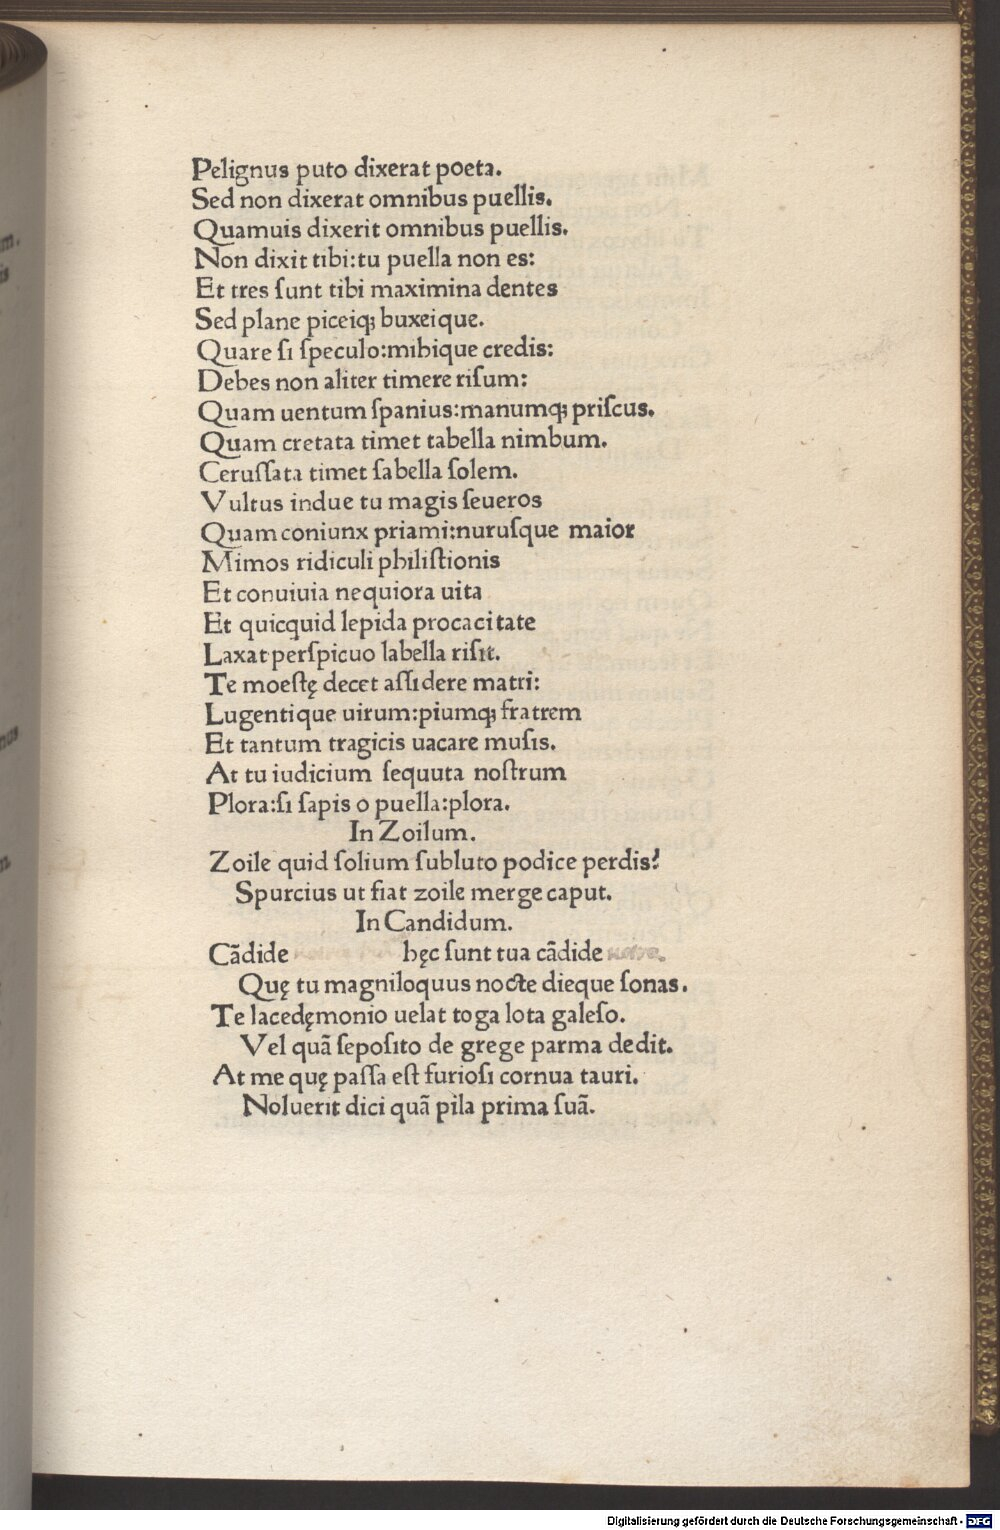 Pelignus puto dixerat poeta.
Sed non dixerat omnibus puellis.
Quamuis dixerit omnibus puellis.
Non dixit tibi:tu puella non es:
Et tres ſunt tibi maximina dentes
Sed plane piceiqꝫ buxeique.
Quare ſi ſpeculo:mihique credis:
Debes non aliter timere riſum:
Quam uentum ſpanius:manumqꝫ priſcus.
Quam cretata timet tabella nimbum.
Ceruſſata timet ſabella ſolem.
Vultus indue tu magis ſeueros
Quam coniunx priami:nuruſque maior
Mimos ridiculi philiſtionis
Et conuiuia nequiora uita
Et quicquid lepida procacitate
Laxat perſpicuo labella riſit.
Te moeſtę decet aſſidere matri:
Lugentique uirum:piumqꝫ fratrem
Et tantum tragicis uacare muſis.
At tu iudicium ſequuta noſtrum
Plora:ſi ſapis o puella:plora.
In Zoilum.
Zoile quid ſolium ſubluto podice perdis?
Spurcius ut fiat zoile merge caput.
In Candidum.
Cãdide hęc ſunt tua cãdide
Quę tu magniloquus nocte dieque ſonas.
Te lacedęmonio uelat toga lota galeſo.
Vel quã ſepoſito de grege parma dedit.
At me quę paſſa eſt furioſi cornua tauri.
Noluerit dici quã pila prima ſuã.
Digitalisierung gefördert durch die Deutsche Forschungsgemeinschaft - DFG